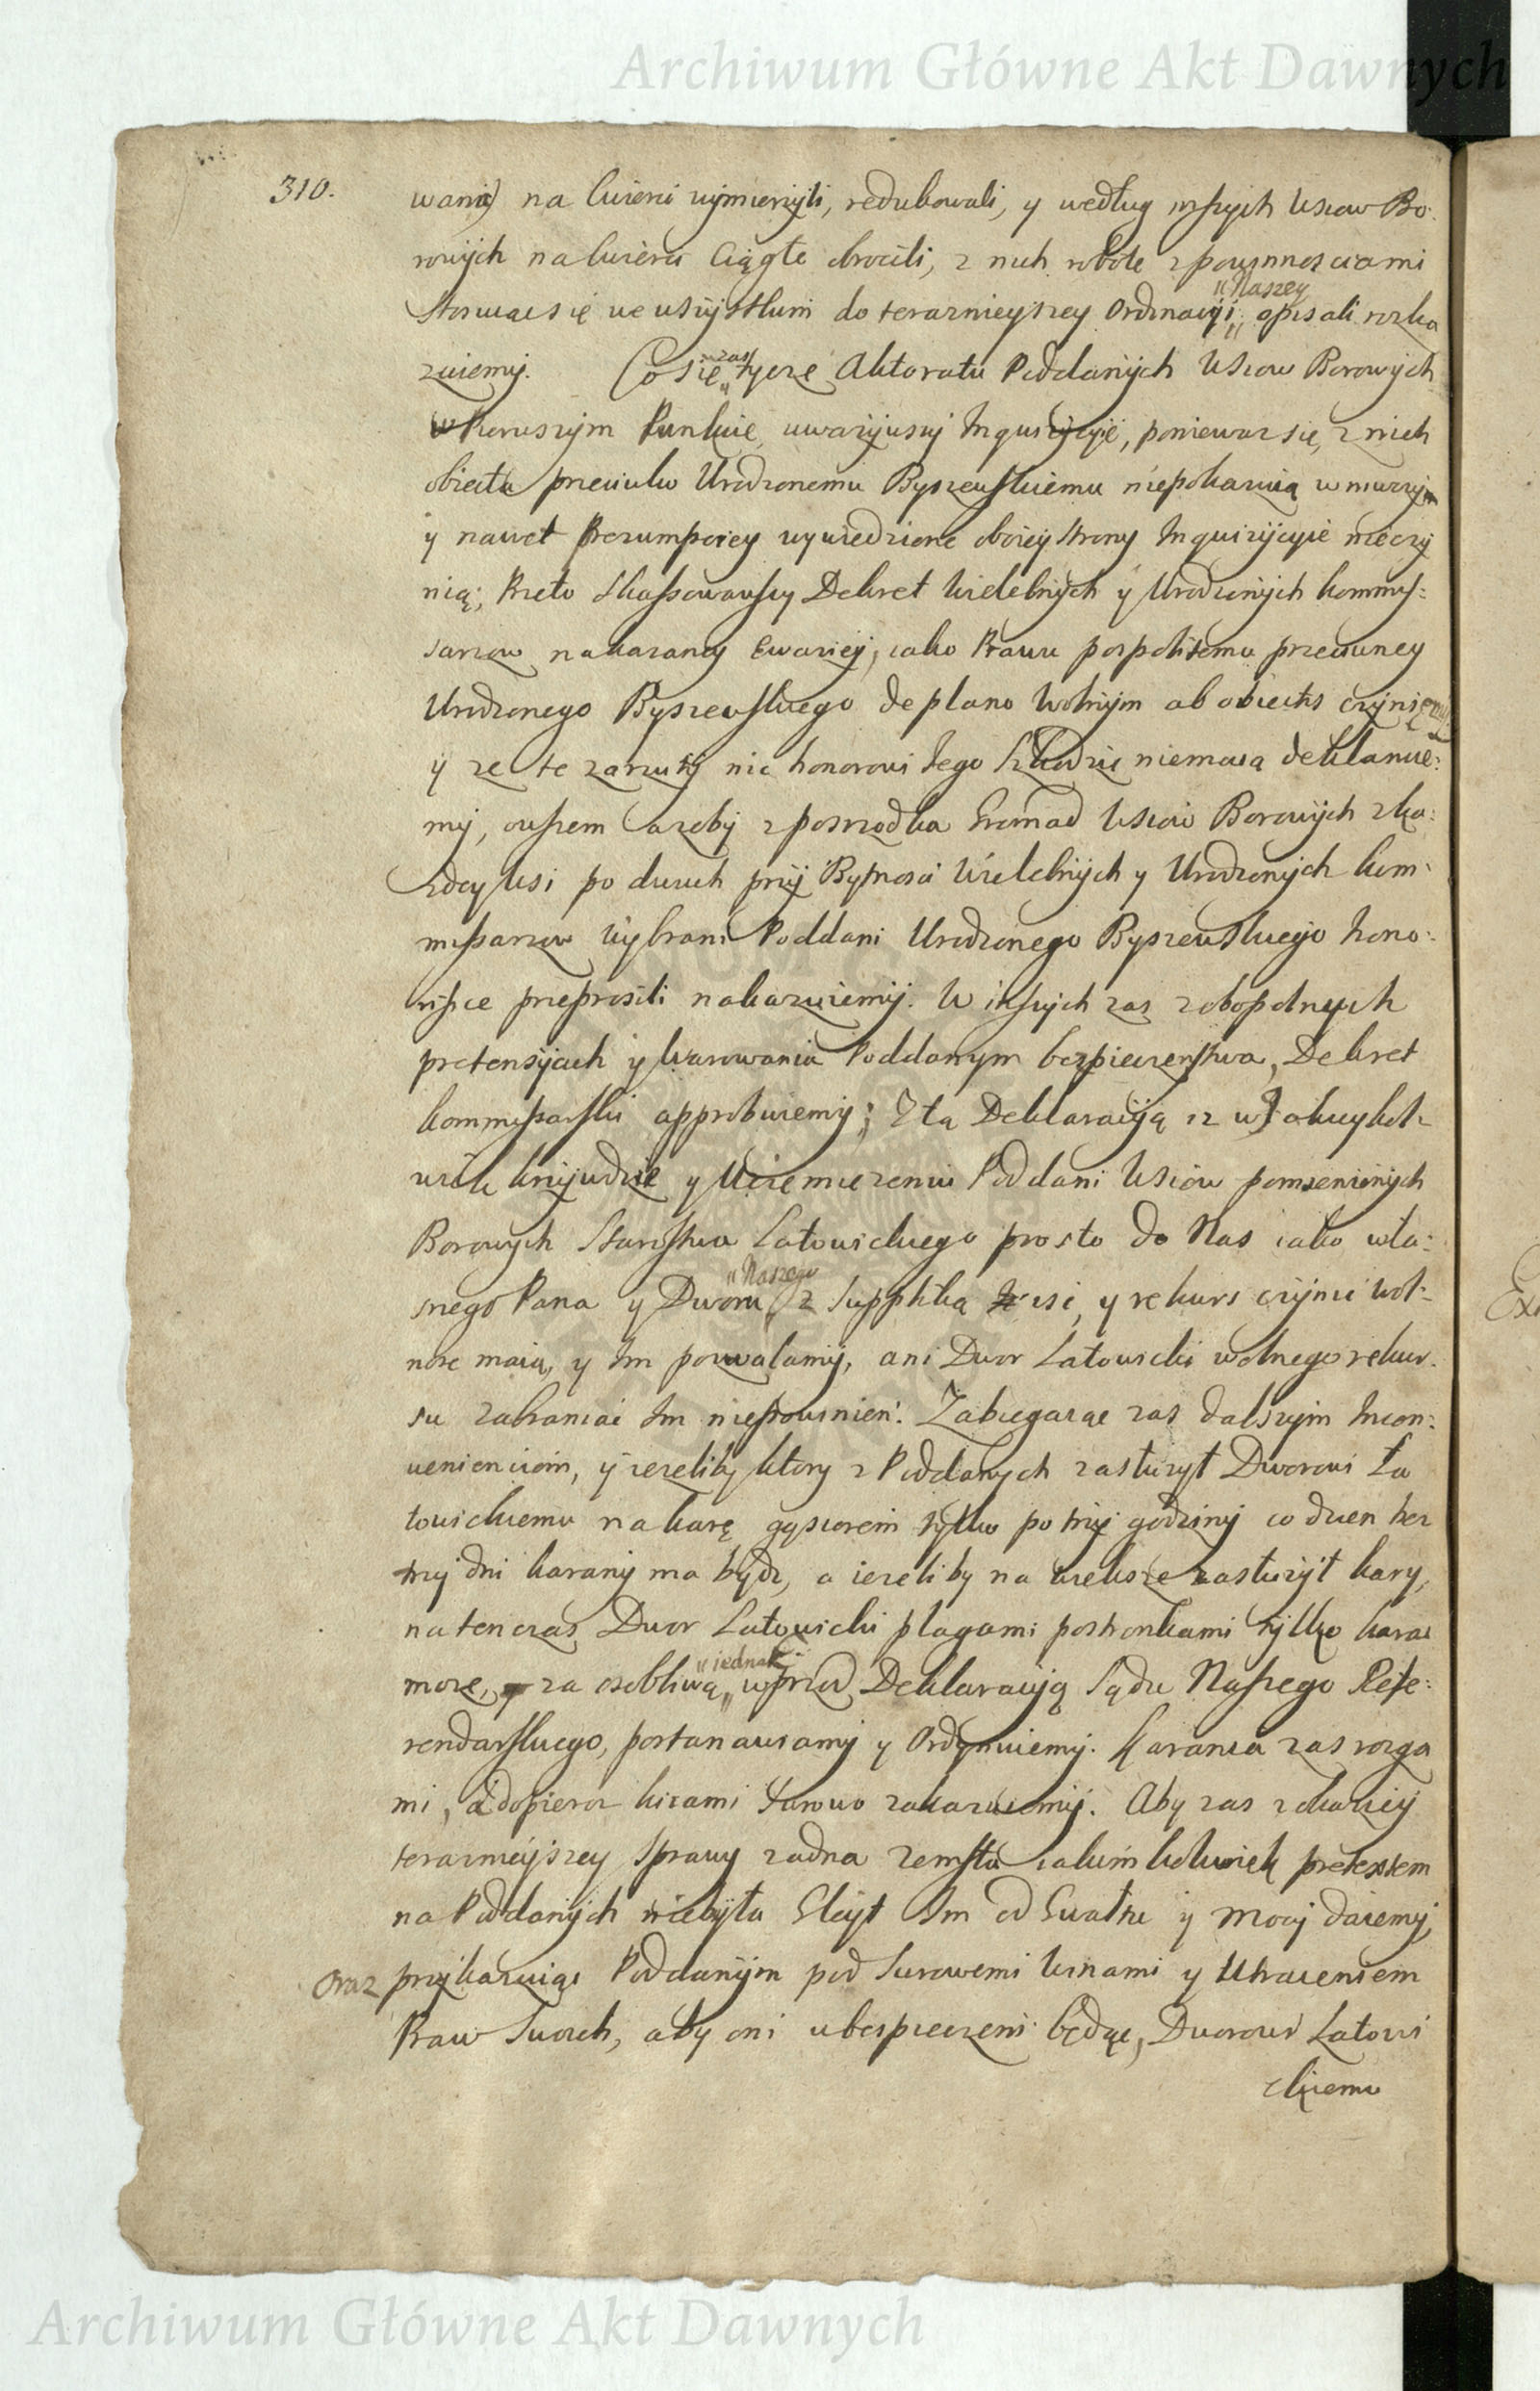 Archiwum Główne Akt Dawnych
310.
wania) na Cwierci wymierzyli, redukowali, y według inszych Wsiow Bo:
rowych na Cwierci Ciągłe obrocili, z nich robote z powinnosciami
stosuiąc się we wszystkim do teraznieyszey Ordinacyi „Naszey opisali rozka
zuiemy. Co się „zas tycze Aktoratu Poddanych Wsiow Borowych
w Pierwszym Punkcie, uwazywszy Inquizycyie, poniewaz się z nich
obiecta przeciwko Urodzonemu Byszewskiemu niepokazuią w niczym
y nawet Prezumpciey wywiedzione oboiey strony Inquizycyie nieczy
nią; Przeto skassowawszy Dekret Wielebnych y Urodzonych Kommis:
sarzow nakazaney Ewaziey, iako Prawu pospolitemu przeciwney
Urodzonego Byszewskiego de plano Wolnym ab obiectis czyniemy
y ze te zarzuty nic honorowi Jego szkodzic niemaią deklaruie:
my, owszem azeby z posrzodka Gromad Wsiow Borowych z ka:
zdey Wsi po dwuch przy Bytnosci Wielebnych y Urodzonych Kom:
missarzow Wybrani Poddani Urodzonego Byszewskiego hono:
rifice przeprosili nakazuiemy. W inszych zas zobopolnych
pretensyach y Warowania Poddanym bezpieczenstwa, Dekret
Kommissarski approbuiemy; Z tą Deklaracyią iz w Jakieykol:
wiek krzywdzie y Uciemiezeniu Poddani Wsiow pomienionych
Borowych Starostwa Latowickiego prosto do Nas iako wła:
snego Pana y Dworu „Naszego z Suppliką isc, y rekurs czynic wol:
nosc maią, y Im pozwalamy, ani Dwor Latowicki wolnego rekur:
su zabraniac Im niepowinien. Zabiegaiąc zas dalszym Incon:
veniencyom, y iezeliby ktory z Poddanych zasłuzył Dworowi La
towickiemu na karę gąsiorem tylko po trzy godziny co dzien przez
trzy dni karany ma bydz, a iezeliby na wieksze zasłuzył kary,
natenczas Dwor Latowicki plagami postronkami tylko karac
moze, za osobliwą „iednak wprzod Deklaracyią Sądu Naszego Refe:
rendarskiego, postanawiamy y Ordynuiemy. Karania zas rozga
mi, a dopieroz kiiami surowo zakazuiemy. Aby zas z okaziey
teraznieyszey sprawy zadna zemsta iakimkolwiek pretextem
na Poddanych niebyła Gleyt Im od Gwałtu y Mocy daiemy,
oraz przykazuiąc Poddanym pod surowemi Winami y Utraceniem
Praw Swoich, aby oni ubespieczeni będąc, Dworowi Latowi
ckiemu
Archiwum Główne Akt Dawnych